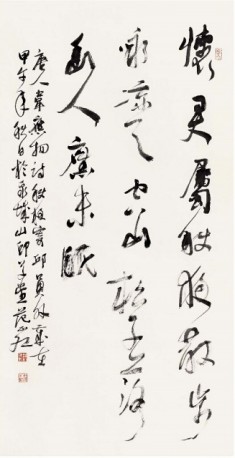 懷君屬秋夜散步
詠凉天空山松子落
幽人應未眠
唐人韋應物詩秋夜寄邱員外稾在
甲午年秋日於永